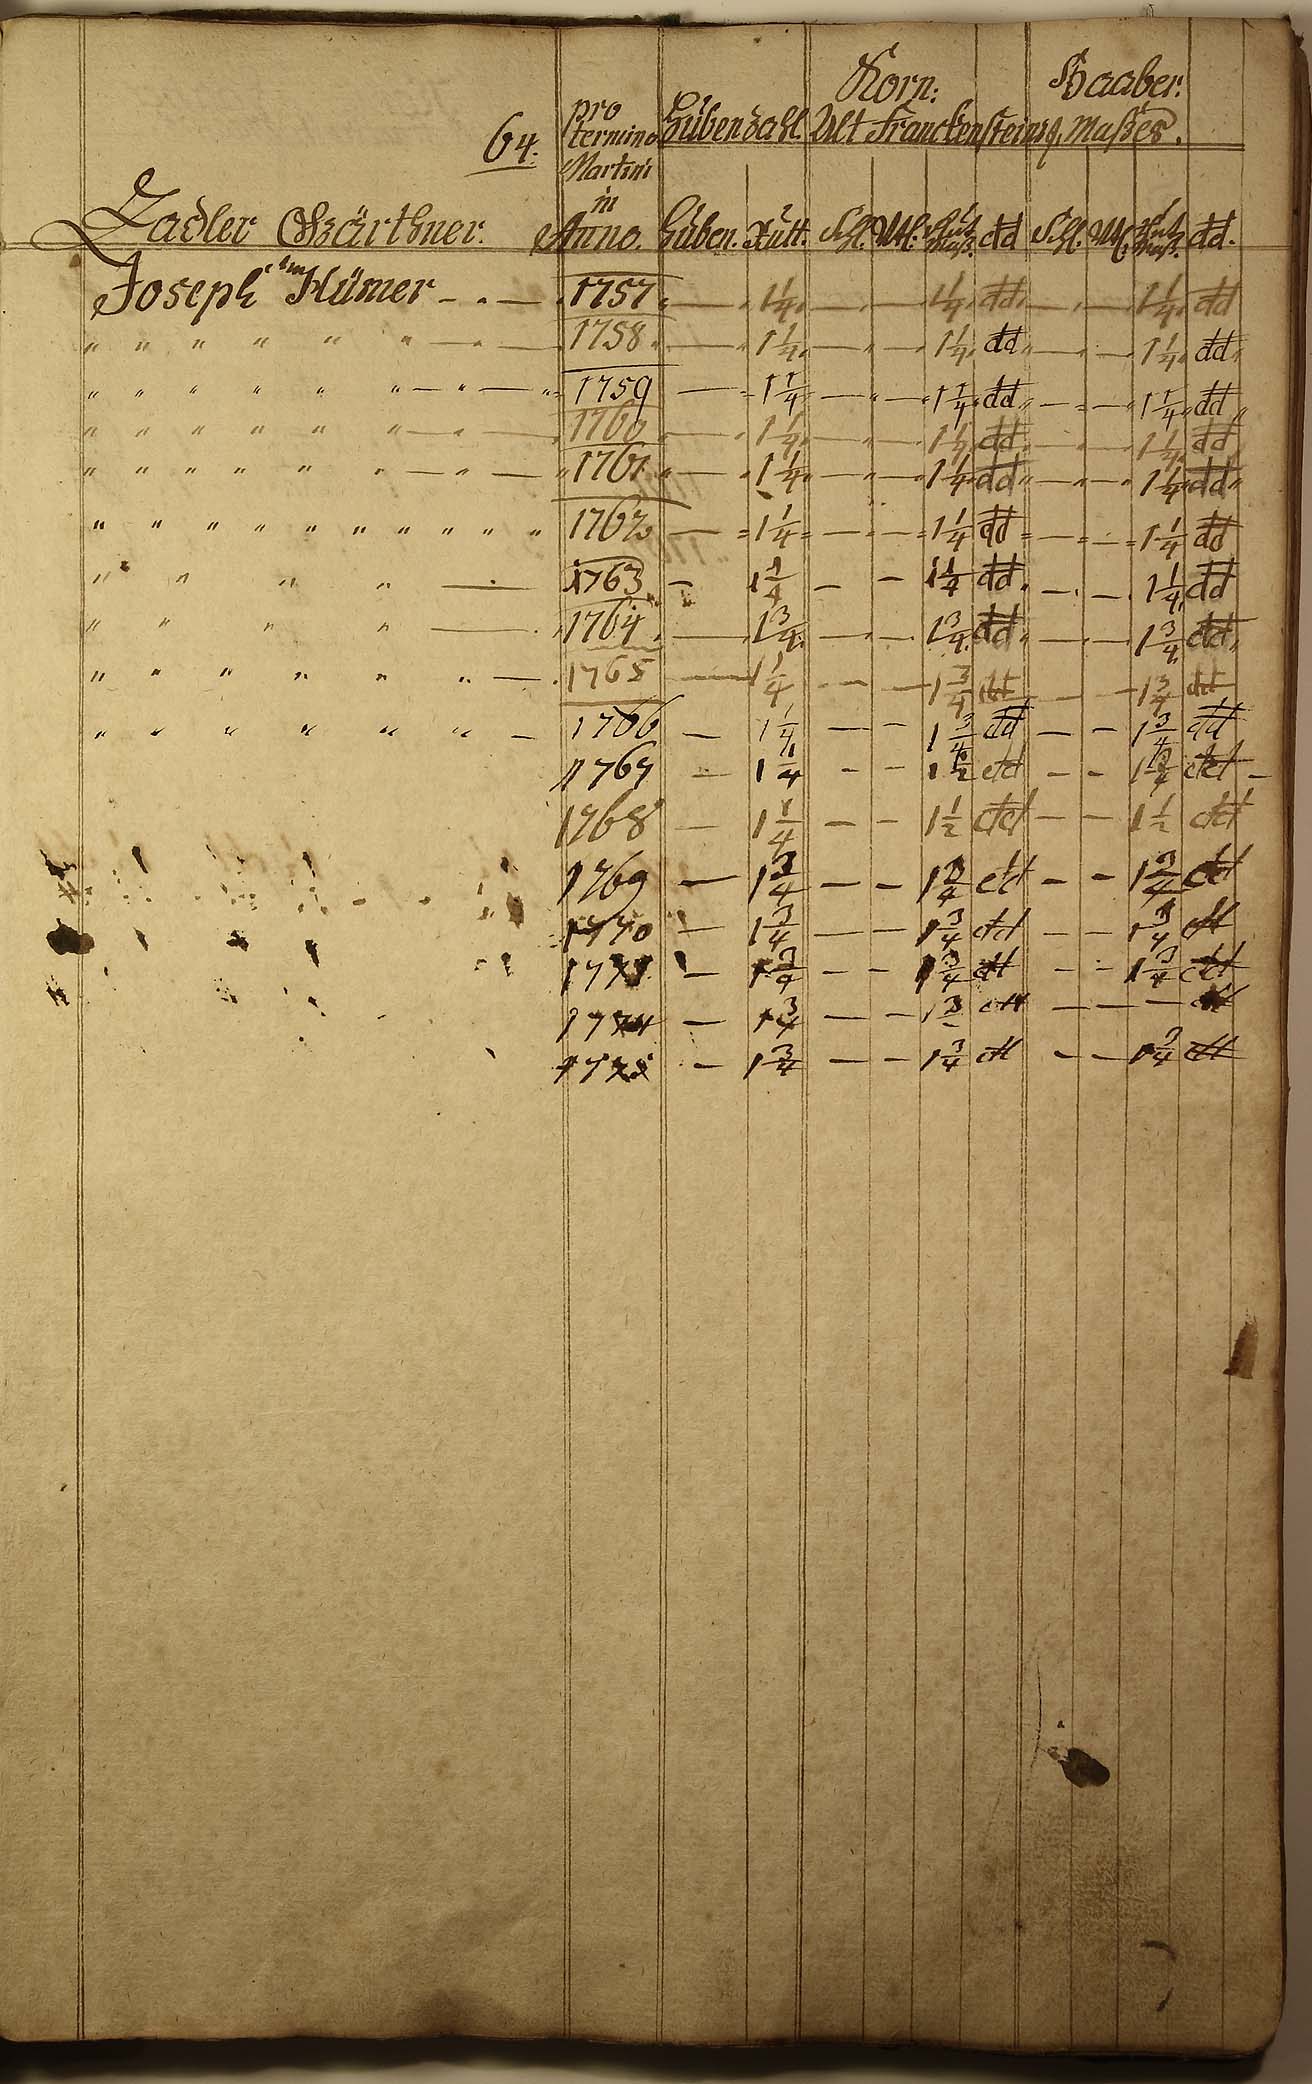 Korn: Haaber.
64. pro termino Martini in Hubenzahl. Alt Franckensteinsch. Maßes.
Zadler Gärthner. Anno. Huben. Rutt. Schl. Mtl. dd Schl. Mtl. dd.
Joseph Hümer - . - 1757 . — . 1 1/4 . — . — 1 1/4 dd . — . — 1 1/4 dd
" " " " " " — . — 1758 . — 1 1/4 — . — 1 1/4 dd — . — 1 1/4 dd
" " " " " " — " — 1759 — 1 1/4 — " — 1 1/4 dd — " — 1 1/4 dd
" " " " " " — . — 1760 — 1 1/4 — . — 1 1/4 dd — . — 1 1/4 dd
" " " " " " — " — 1761 " — 1 1/4 — " — 1 1/4 dd — " — 1 1/4 dd
" " " " " " " " " " 1762 — 1 1/4 — . — 1 1/4 dd — — 1 1/4 dd
" " " " — . 1763 — 1 1/4 — - 1 1/4 dd. — . — 1 1/4 dd
" " " " — 1764 — 1 3/4 — . — 1 3/4 dd — . — 1 3/4 dd
" " " " " " — . 1765 — 1 1/4 — — 1 3/4 dd — — 1 3/4 dd
" " " " " " — 1766 — 1 1/4 — - 1 3/4 dd — - 1 3/4 dd
1767 — 1 1/4 - - 1 1/2 dd — - dd -
1768 — 1 1/4 — - 1 1/2 dd — - 1 1/2 dd
1769 — 1 3/4 — - 1 3/4 dd — - 1 3/4 dd
1770 — 1 3/4 — — 1 3/4 dd — — 1 3/4 dd
— 1 3/4 — - 1 3/4 dd — - 1 3/4 dd
1774 — 1 3/4 — - dd — — — dd
1775 — 1 3/4 — - 1 3/4 dd — — 1 3/4 dd